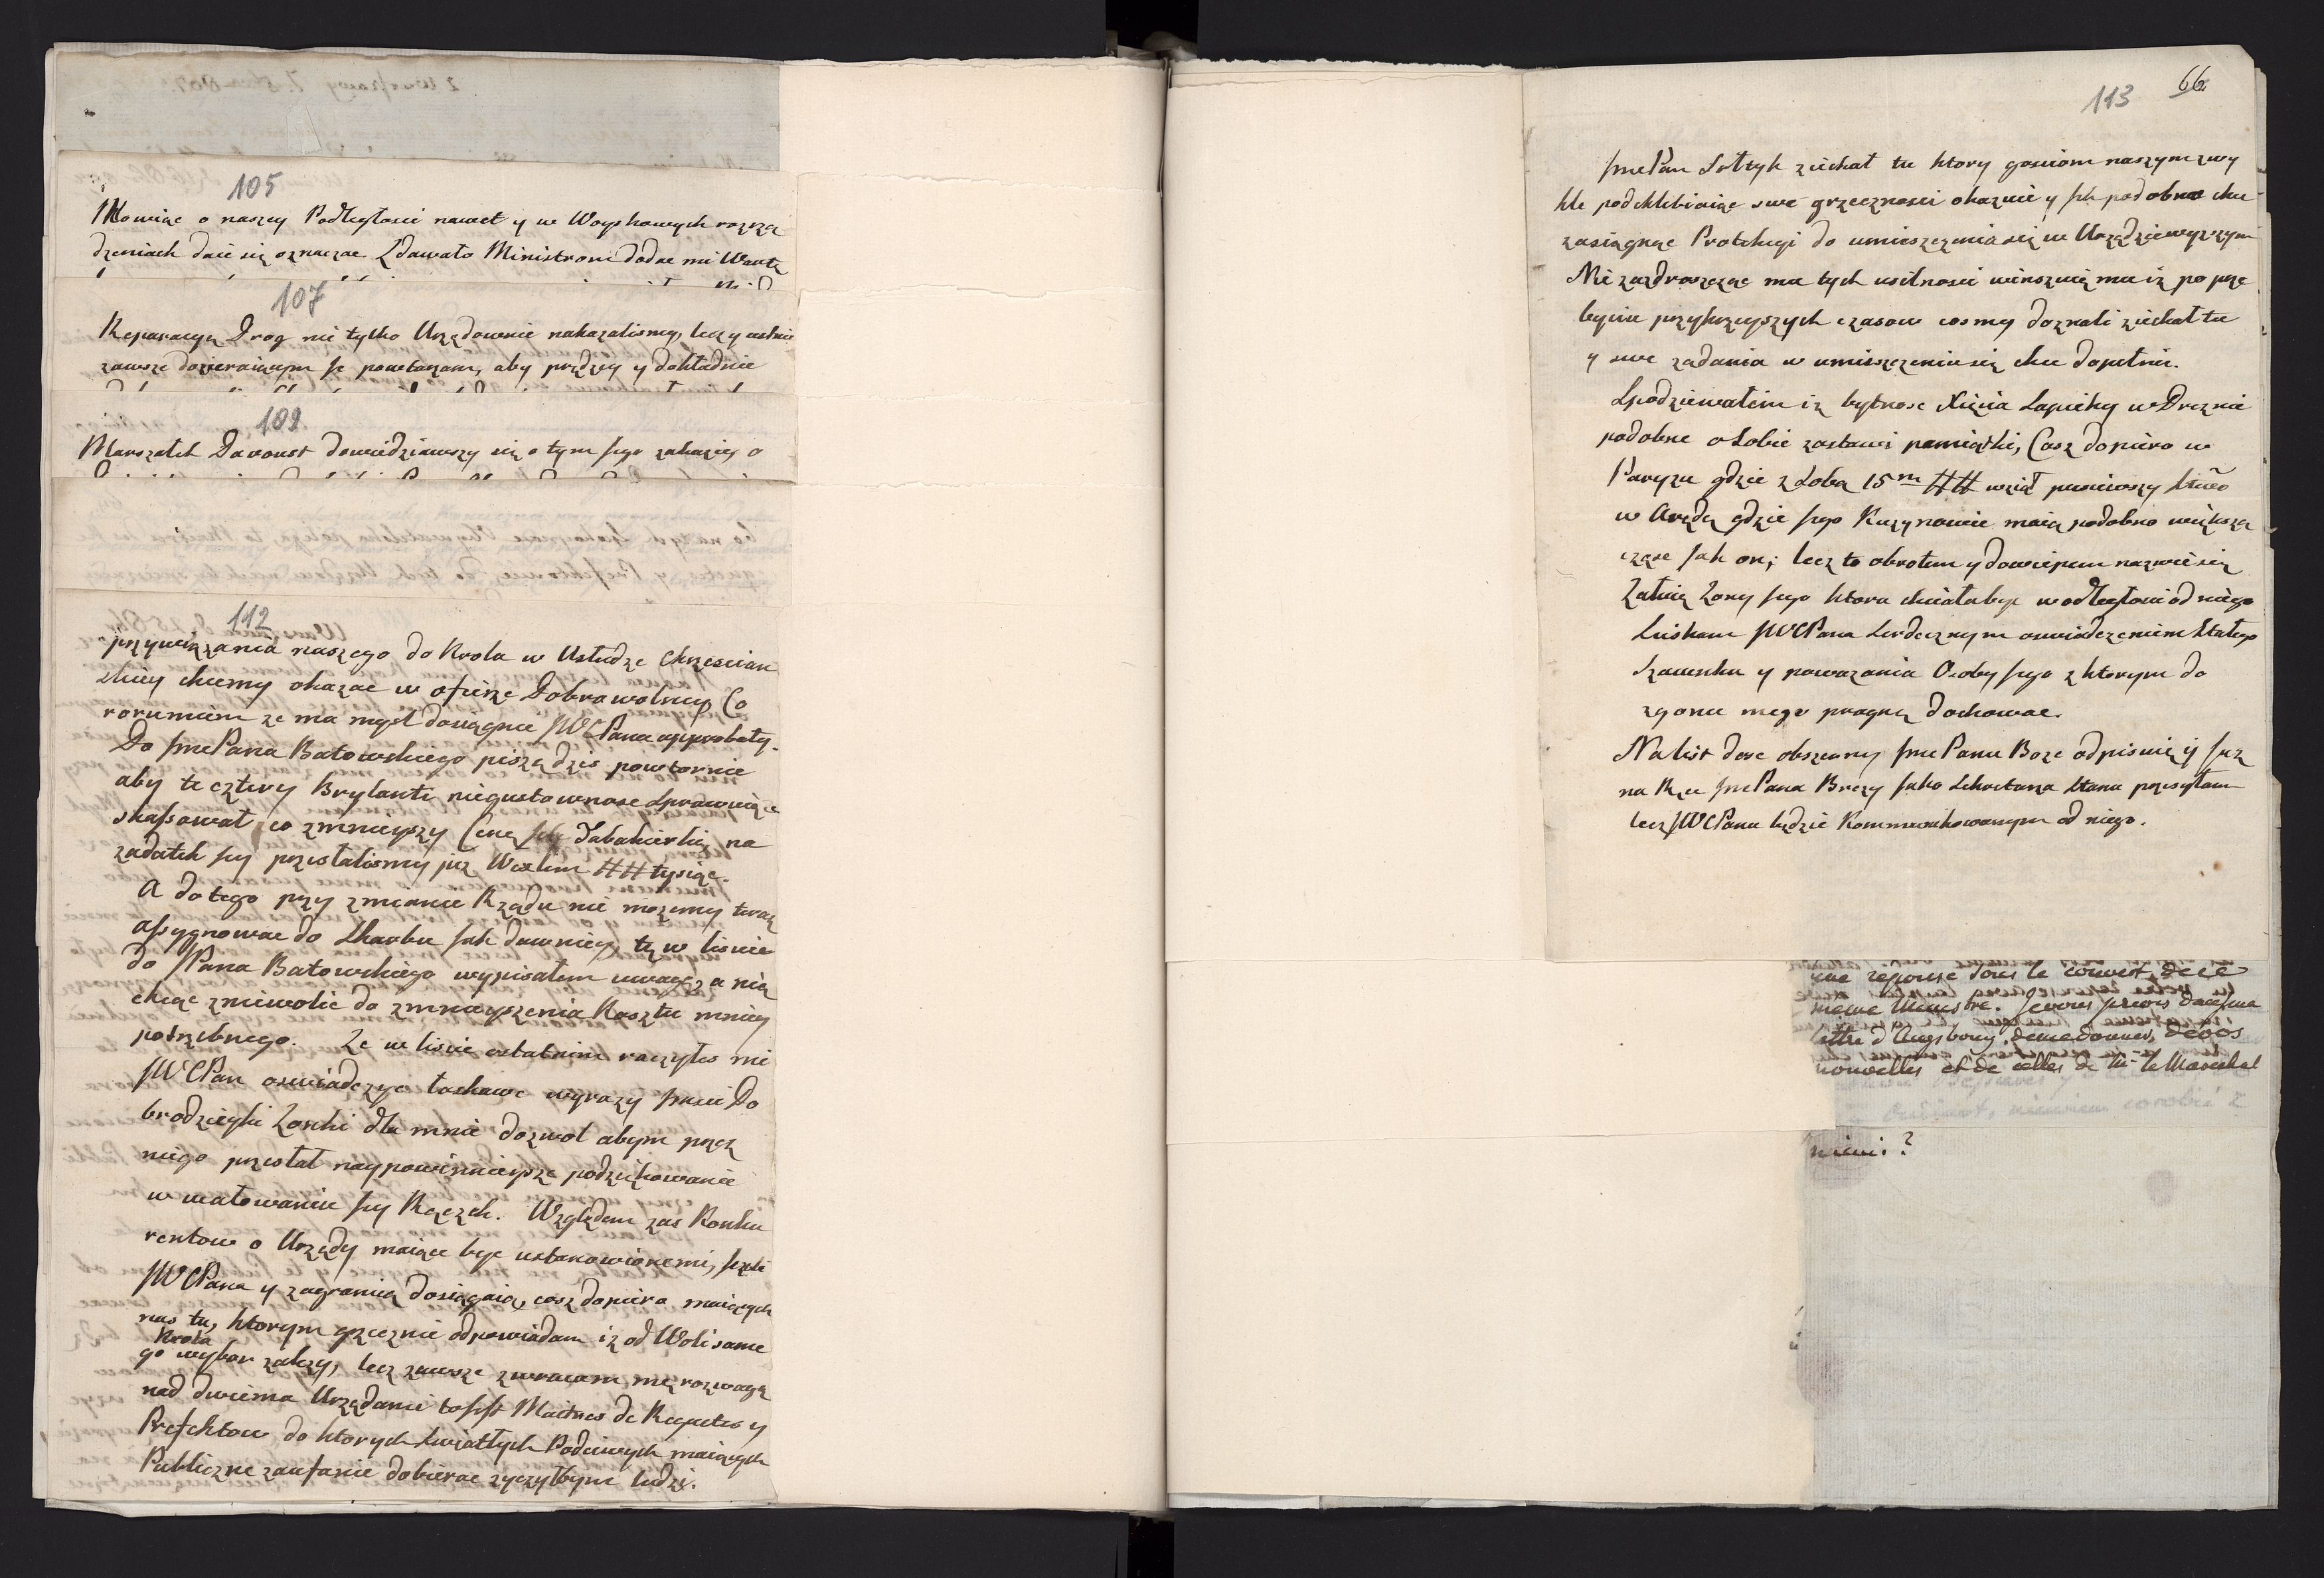 105
Mowiąc o naszey Podległosci nawet y w Woyskowych rozrzą
dzeniach daie się oznaczac. Zdawało Ministrom dodac mi Wartę
107
Reparacyą Drog nie tylko Urzędownie nakazalismy, lecz y ustnie
zawsze dozieraiącym ie powtarzam, aby prędzey y dokładnie
109
Marszałek Davoust dowiedziawszy się o tym iego zakazie, o
112
przywiązania naszego do Krola w Usłudze chrzescian
skiey chcemy okazac w ofierze Dobrowolney, Co
rozumiem ze ma mysl dosięgnie JWCPana approbaty.
Do JmcPana Batowskiego piszę dzis powtornie
aby te cztery Brylanti niegustownosc sprawuiące
skassował co zmnieyszy Cenę Tabakierki, na
zadatek iey przesłalismy już Wexlem ## tysiąc.
A do tego przy zmianie Rządu nie mozemy teraz
assygnowac do Skarbu iak dawniey, tę w liscie
do JPana Batowskiego wypisałem uwagę a nią
chcąc zniewolic do zmnieyszenia Kosztu mniey
potrzebnego. Ze w liscie ostatnim raczyłes mi
JWCPan oswiadczyc łaskawe wyrazy Jmci Do
brodzieyki Zonki dla mnie dozwol abym przez
niego przesłał naypowinnieysze podziękowanie
w ucałowaniu iey Rączek. Względem zas Konku
rentow o Urzędy maiące byc ustanowionemi, ieżeli
JWCPana y zagranicą dosięgaią, cosz dopiero maiących
nas tu, ktorym grzecznie odpowiadam iz od Woli same
Krola
go wybor zalezy, lecz zawsze zwracam mę rozwagę
nad dwiema Urzędami to iest Maitres de Requetes y
Prefektow do ktorych swiatłych Podciwych maiących
Publiczne zaufanie dobierac zyczyłbym ludzi.
113 66
JmcPan Sołtyk ziechał tu ktory gosciom naszym zwy
kle podchlebiaiąc swe grzecznosci okazuie y iak podobno chce
zasiągnąc Protekcyi do umieszczenia się w Urzędzie wyzszym
Nie zazdroszcząc mu tych usilnosci winszuię mu iz po prze
byciu przykrzeyszych czasow cosmy doznali ziechał tu
y swe ządania w umieszczeniu się chce dopełnic.
Spodziewałem iz bytnosc Xięcia Sapiehy w Dreznie
podobne o Sobie zostawi pamiątki, Cosz dopiero w
Paryzu gdzie z Sobą 15m ## wziął pusciwszy
w Arędę gdzie iego Kuzynowie maią podobno większą
częsc iak on; lecz to obrotem y dowcipem nazwie się
Załuię Zony iego ktora chciałaby w odległosci od niego
Sciskam JWCPana Serdecznym oswiadczeniem Stałego
Szacunku y powazania Osoby iego z ktorym do
zgonu mego pragnę dochowac.
Na list dosc obszerny JmcPanu Boze odpisuię y iuz
na Ręce JmPana Brezy iako Sekretarza Stanu przesyłam
lecz JWCPanu będzie Kommunikowanym od niego.
une reponse sous le couvert de ce
meme Ministre. Je vous prevois dans ma
lettre d'Augsbourg, de me donner de vos
nouvelles et de celles de Mr le Marechal
niemi?